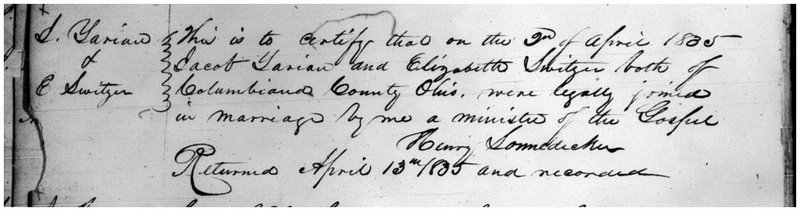 J. Yarian
&
E Switzer
This is to certify that on the 2nd of April 1835
Jacob Yarian and Elizabeth Switzer both of
Columbiana County Ohio, were legally joined
in marriage by me a minister of the Gospel
Henry Sonnedecker
Returned April 13th 1835 and recorded